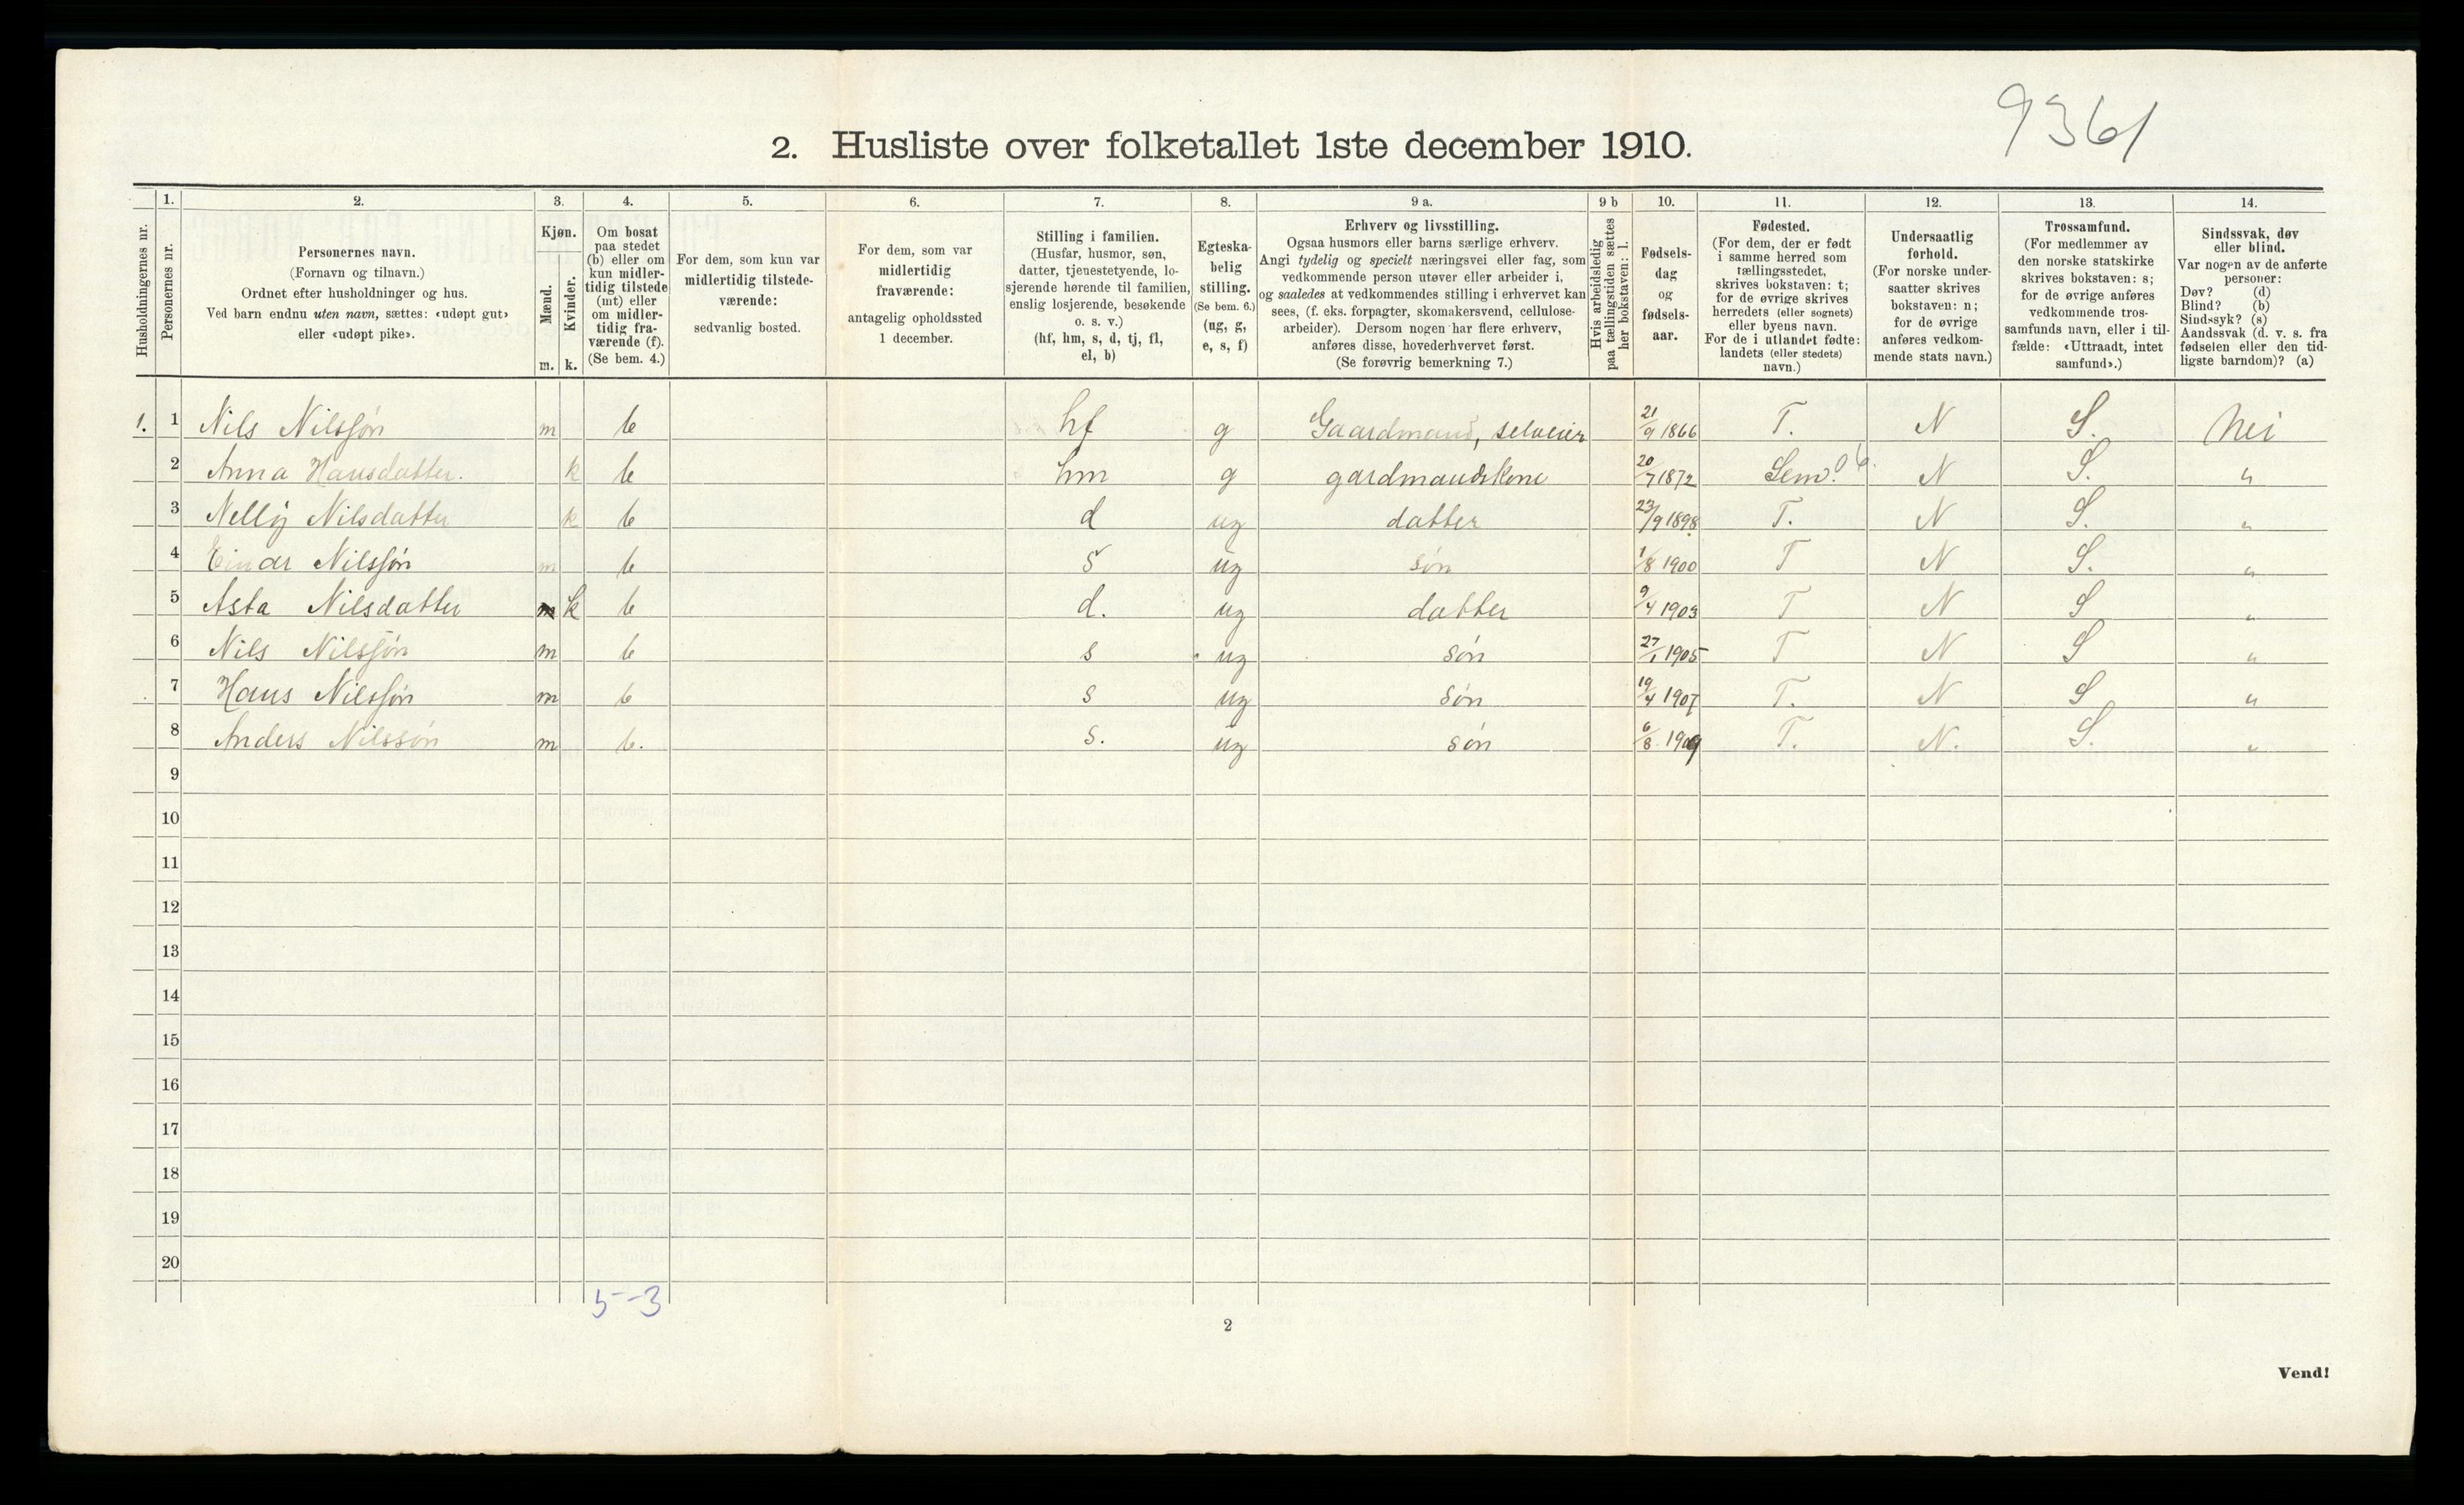 9361
2. Husliste over folketallet 1ste december 1910.
Husholdningernes nr.
1.
Personernes nr.
2.
Personernes navn.
(Fornavn og tilnavn.)
Ordnet efter husholdninger og hus.
Ved barn endnu uten navn, sættes: «udøpt gut»
eller «udøpt pike».
3.
Kjøn.
Mænd.
Kvinder.
m. k.
4.
Om bosat
paa stedet
(b) eller om
kun midler-
tidig tilstede
(mt) eller
om midler-
tidig fra-
værende (f).
(Se bem. 4.)
5.
For dem, som kun var
midlertidig tilstede-
værende:
sedvanlig bosted.
6.
For dem, som var
midlertidig
fraværende:
antagelig opholdssted
1 december.
7.
Stilling i familien.
(Husfar, husmor, søn,
datter, tjenestetyende, lo-
sjerende hørende til familien,
enslig losjerende, besøkende
o. s. v.)
(hf, hm, s, d, tj, fl,
el, b)
8.
Egteska-
belig
stilling.
(Se bem. 6.)
(ug, g,
e, s, f)
9 a.
Erhverv og livsstilling.
Ogsaa husmors eller barns særlige erhverv.
Angi tydelig og specielt næringsvei eller fag, som
vedkommende person utøver eller arbeider i,
og saaledes at vedkommendes stilling i erhvervet kan
sees, (f. eks. forpagter, skomakersvend, cellulose-
arbeider). Dersom nogen har flere erhverv,
anføres disse, hovederhvervet først.
(Se forøvrig bemerkning 7.)
9 b
Hvis arbeidsledig
paa tællingstiden sættes
her bokstaven: l.
10.
Fødsels-
dag
og
fødsels-
aar.
11.
Fødested.
(For dem, der er født
i samme herred som
tællingsstedet,
skrives bokstaven: t;
for de øvrige skrives
herredets (eller sognets)
eller byens navn.
For de i utlandet fødte:
landets (eller stedets)
navn.)
12.
Undersaatlig
forhold.
(For norske under-
saatter skrives
bokstaven: n;
for de øvrige
anføres vedkom-
mende stats navn.)
13.
Trossamfund.
(For medlemmer av
den norske statskirke
skrives bokstaven: s;
for de øvrige anføres
vedkommende tros-
samfunds navn, eller i til-
fælde: «Uttraadt, intet
samfund».)
14.
Sindssvak, døv
eller blind.
Var nogen av de anførte
personer:
Døv? (d)
Blind? (b)
Sindssyk? (s)
Aandssvak (d. v. s. fra
fødselen eller den tid-
ligste barndom)? (a)
1. 1 Nils Nilssøn m b hf g Gaardmand, selveier 21/9 1866 T. N S. Nei
2 Anna Hansdatter. k b hm g gardmandskone 20/7 1872 Sem. 06. N S. "
3 Nelly Nilsdatter k b d ug datter 23/9 1898 T. N S. "
4 Einar Nilssøn m b s ug søn 1/8 1900 T N S. "
5 Asta Nilsdatter m k b d. ug datter 9/4 1903 T N S "
6 Nils Nilssøn m b s ug søn 27/1 1905 T N S "
7 Hans Nilssøn m b s ug søn 19/4 1907 T. N S "
8 Anders Nilssøn m b. s. ug søn 6/8 1909 T. N. S. "
9
10
11
12
13
14
15
16
17
18
19
20
5-3
2
Vend!